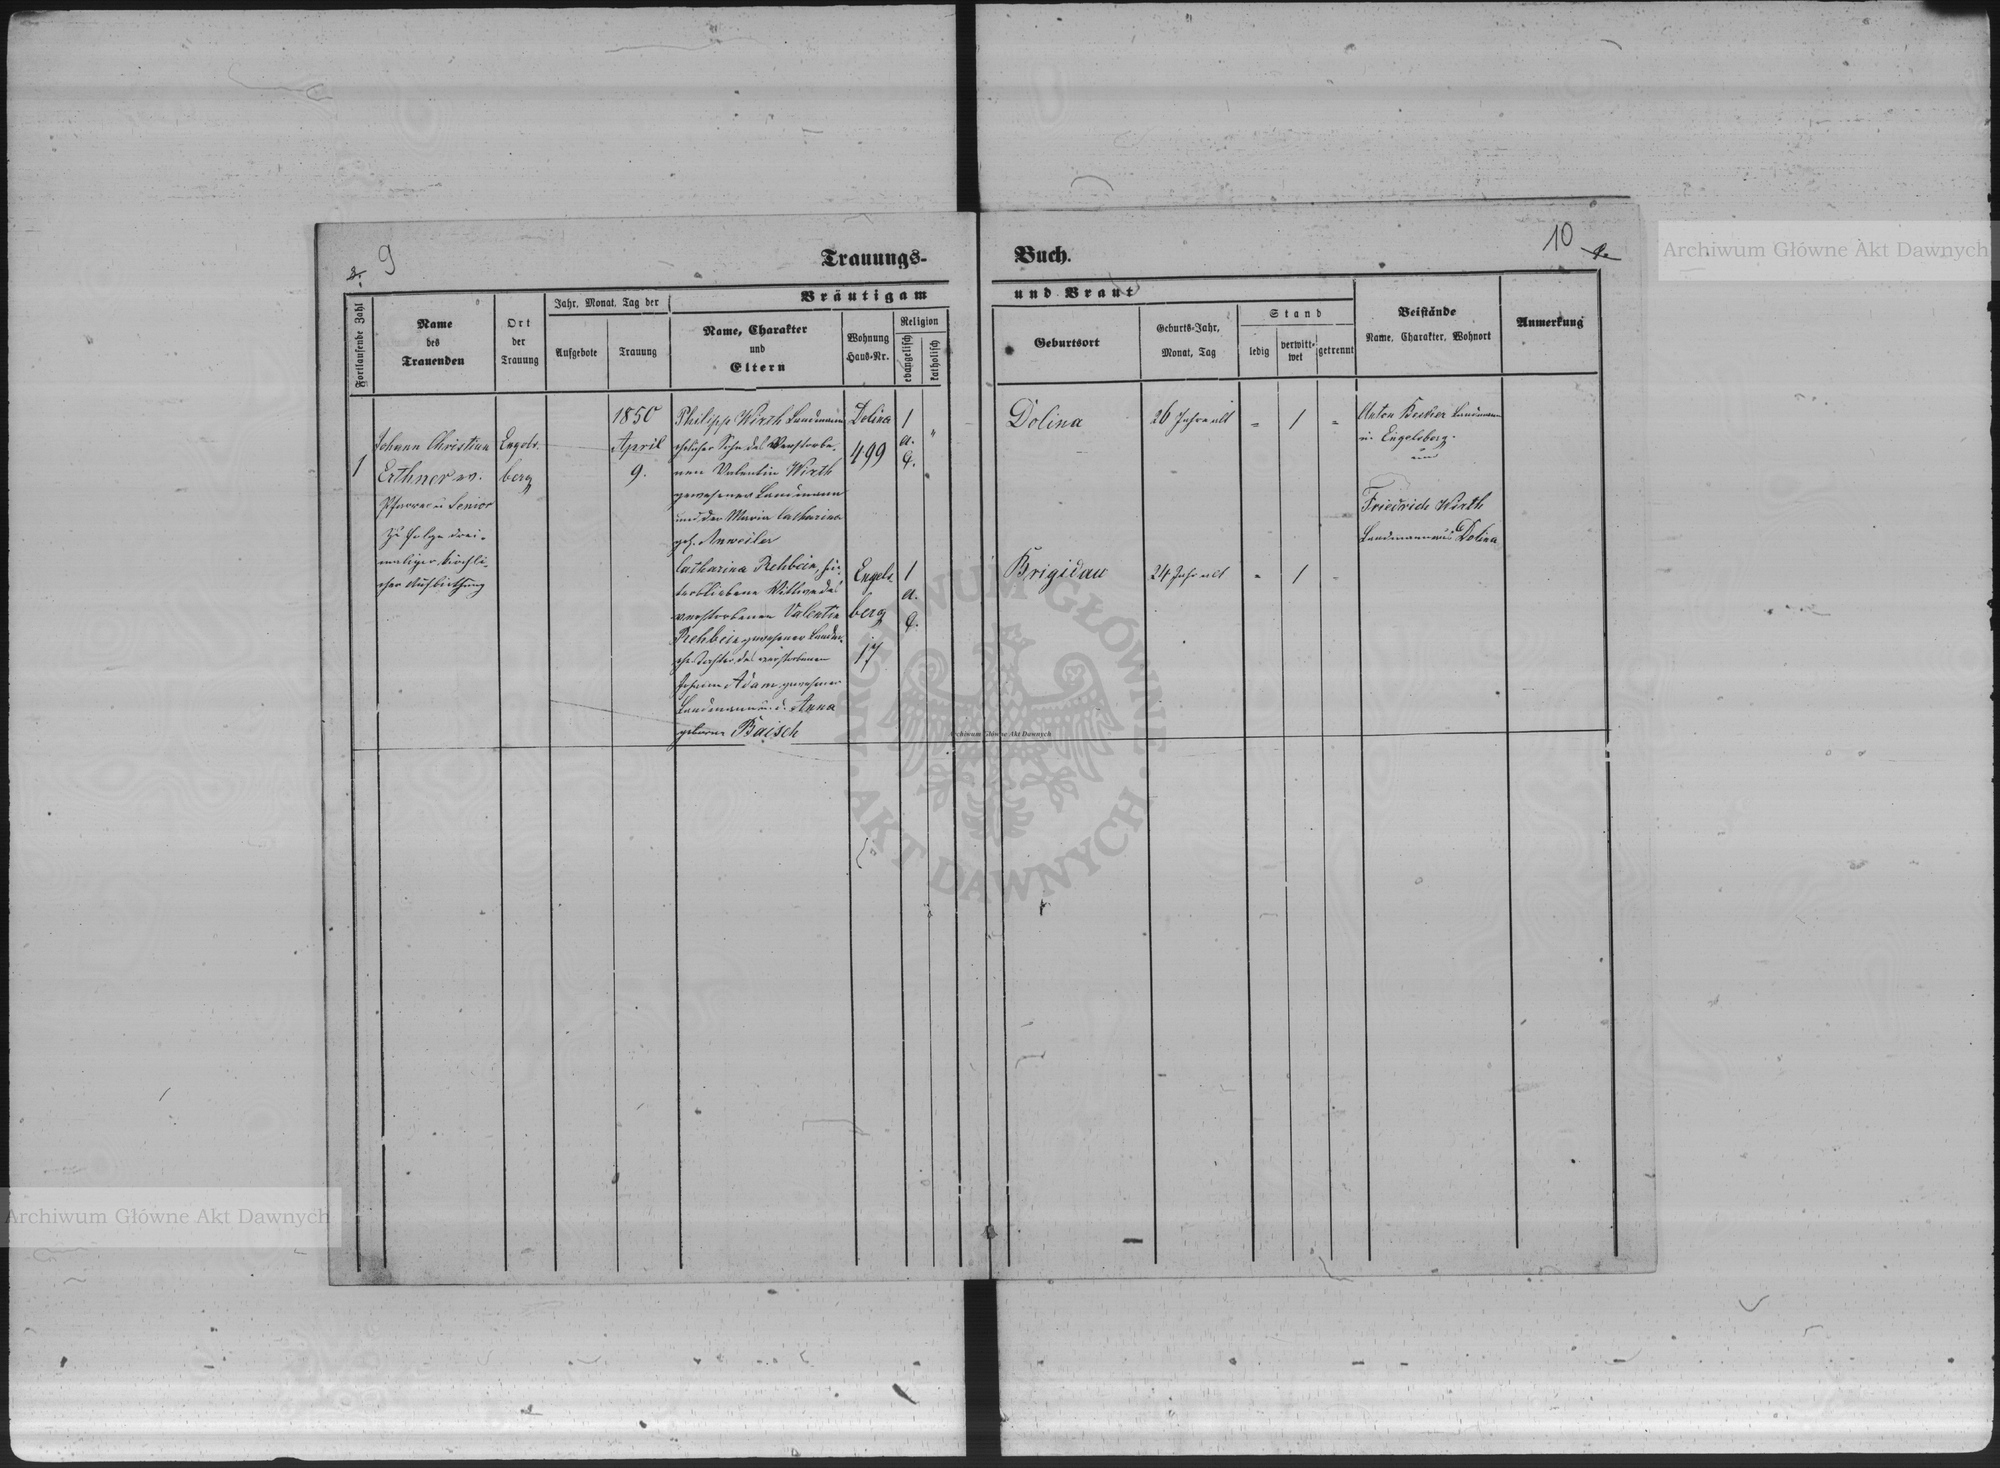 9
10
Trauungs-
Buch.
Archiwum Główne Akt Dawnych
Fortlaufende Zahl
Name
des
Trauenden
Ort
der
Trauung
Jahr, Monat, Tag der
Aufgebote
Trauung
Bräutigam
Name, Charakter
und
Eltern
Wohnung
Haus-Nr.
Religion
evangelisch
katholisch
und Braut
Geburtsort
Geburts-Jahr,
Monat, Tag
Stand
ledig
verwitt-
wet
getrennt
Beistände
Name, Charakter, Wohnort
Anmerkung
1
Johann Christian
Erthner ev.
Pfarrer u Senior
zu Folge drei-
maliger kirchli-
cher Aufbiethung
Engels-
berg
1850
April
9.
Philipp Wirth Landmann
ehelicher Sohn des Verstorbe-
nen Valentin Wirth
gewesener Landmann
und der Maria Catharina
geb. Anweiler
Dolina
499
1
a.
C.
"
Dolina
26 Jahre alt
"
1
"
Anton Becker Landmann
in Engelsberg.
und
Friedrich Wirth
Landmann aus Dolina
Catharina Rehbein, hin-
terbliebene Wittwe des
verstorbenen Valentin
Rehbein gewesener
Tochter des verstorbenen
Adam gewesener
Landmann u. d. Anna
geborne Baisch
Engels-
berg
17
1
a.
C.
Brigidau
24 Jahr alt
"
1
"
ARCHIWUM GŁÓWNE
AKT DAWNYCH
Archiwum Główne Akt Dawnych
Archiwum Główne Akt Dawnych